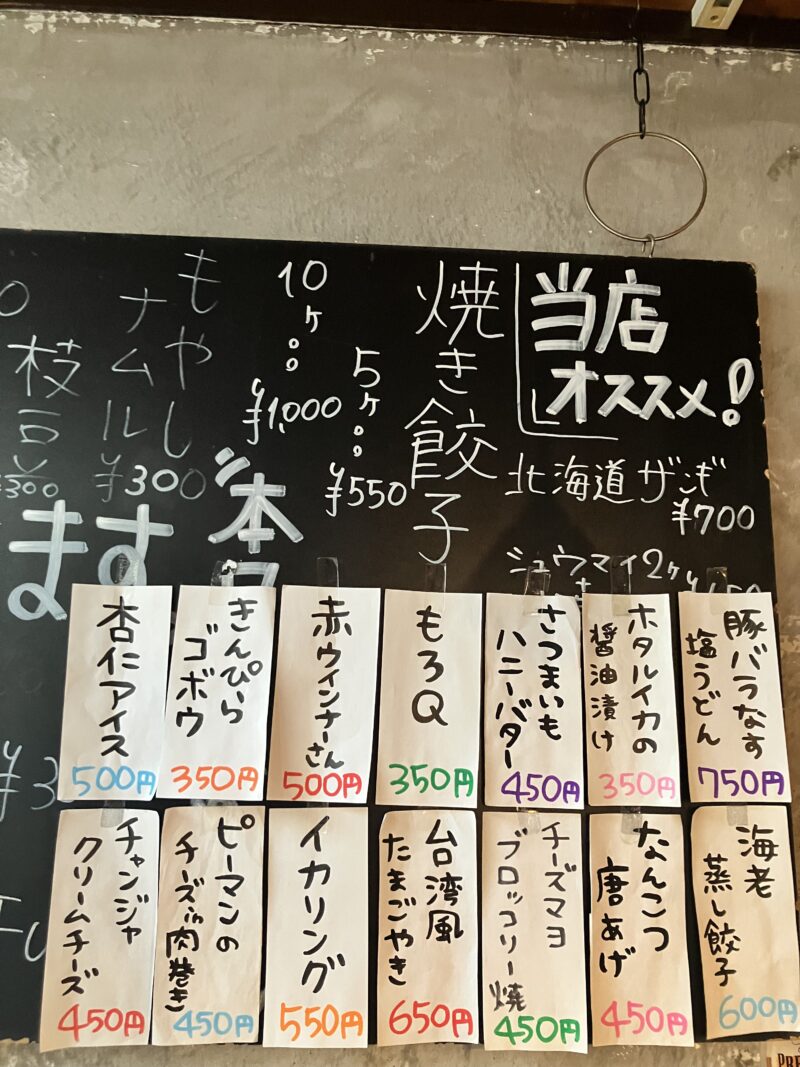 当店
オススメ!
北海道ザンギ
¥700
シュウマイ2ヶ
焼き餃子
5ヶ
¥550
10ヶ
¥1,000
もやし
ナムル
¥300
枝豆
¥300
ます
豚バラなす
塩うどん
750円
ホタルイカの
醤油漬け
350円
さつまいも
ハニーバター
450円
もろQ
350円
赤ウインナーさん
500円
きんぴら
ゴボウ
350円
杏仁アイス
500円
海老
蒸し餃子
600円
なんこつ
唐あげ
450円
チーズマヨ
ブロッコリー焼
450円
台湾風
たまごやき
650円
イカリング
550円
ピーマンの
チーズin肉巻き
450円
チャンジャ
クリームチーズ
450円